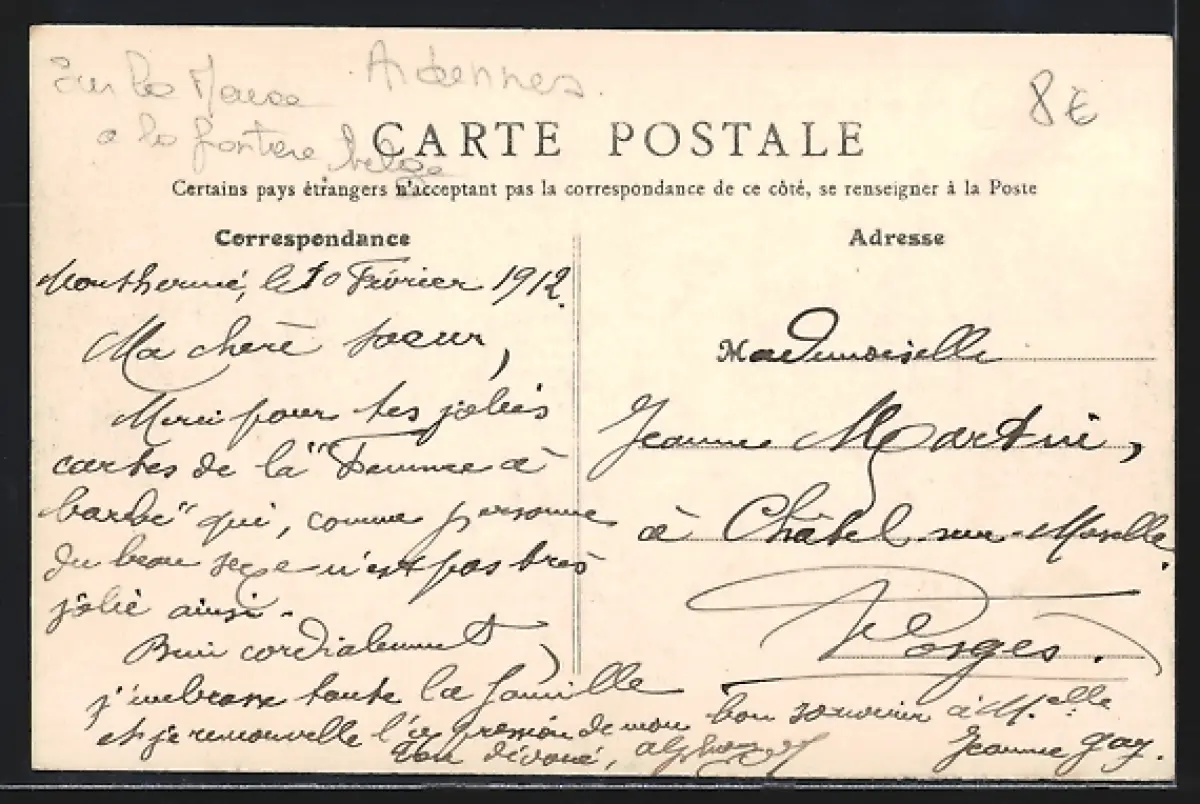 Ardennes.
Sur la Meuse
8€
a la frontière belge
CARTE POSTALE
Certains pays étrangers n'acceptant pas la correspondance de ce côté, se renseigner à la Poste
Correspondance
Monthermé, le 10 Février 1912.
Ma chère soeur,
Merci pour tes jolies
cartes de la "Femme à
barbe" qui, comme personne
du beau sexe n'est pas très
jolie ainsi.
Bien cordialement
j'embrasse toute la famille
et je renouvelle l'expression de mon
bon souvenir à Melle
Jeanne Gay.
Ton dévoué,
Adresse
Mademoiselle
Jeanne Martin,
à Châtel-sur-Moselle.
Vosges.